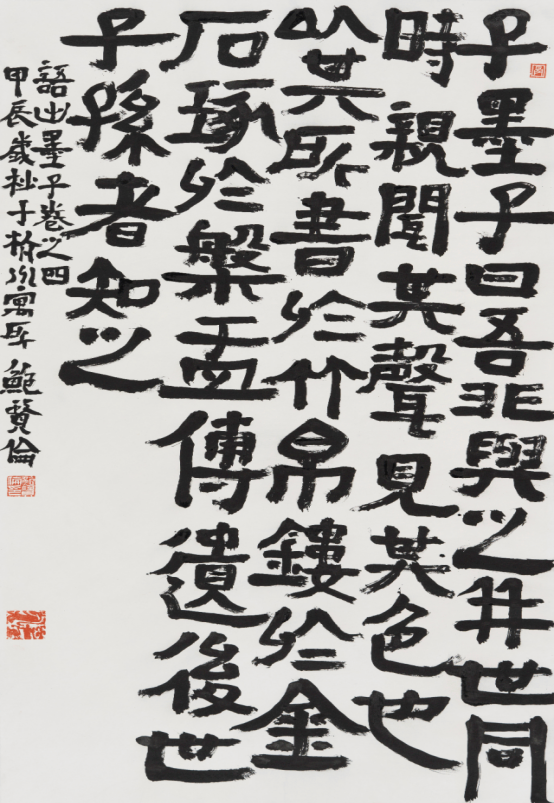 子墨子曰吾非與之并世同
時親聞其聲見其色也
以其所書於竹帛鏤於金
石琢於槃盂傳遺後世
子孫者知之
語出墨子卷之四
甲辰歲杪于
寫耳鮑賢倫